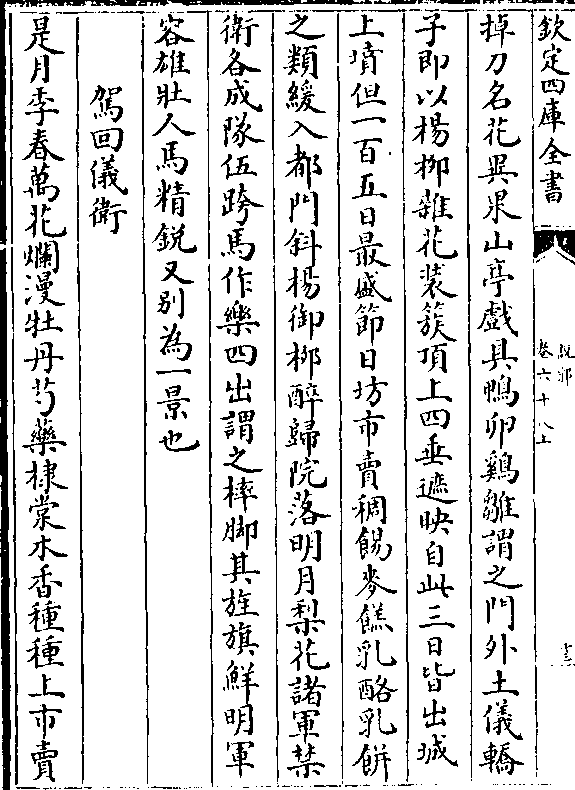 欽定四庫全書
說郛
卷六十八上
十三
掉刀名花異果山亭戲具鴨卵鷄雛謂之門外土儀轎
子即以楊栁雜花装簇頂上四垂遮映自此三日皆出城
上墳但一百五日最盛節日坊市賣稠餳麥餻乳酪乳餅
之類緩入都門斜楊御栁醉歸院落明月棃花諸軍禁
衛各成隊伍跨馬作樂四出謂之摔脚其旌旗鮮明軍
容雄壯人馬精鋭又别為一景也
駕回儀衛
是月季春萬花爛漫牡丹芍藥棣棠木香種種上市賣